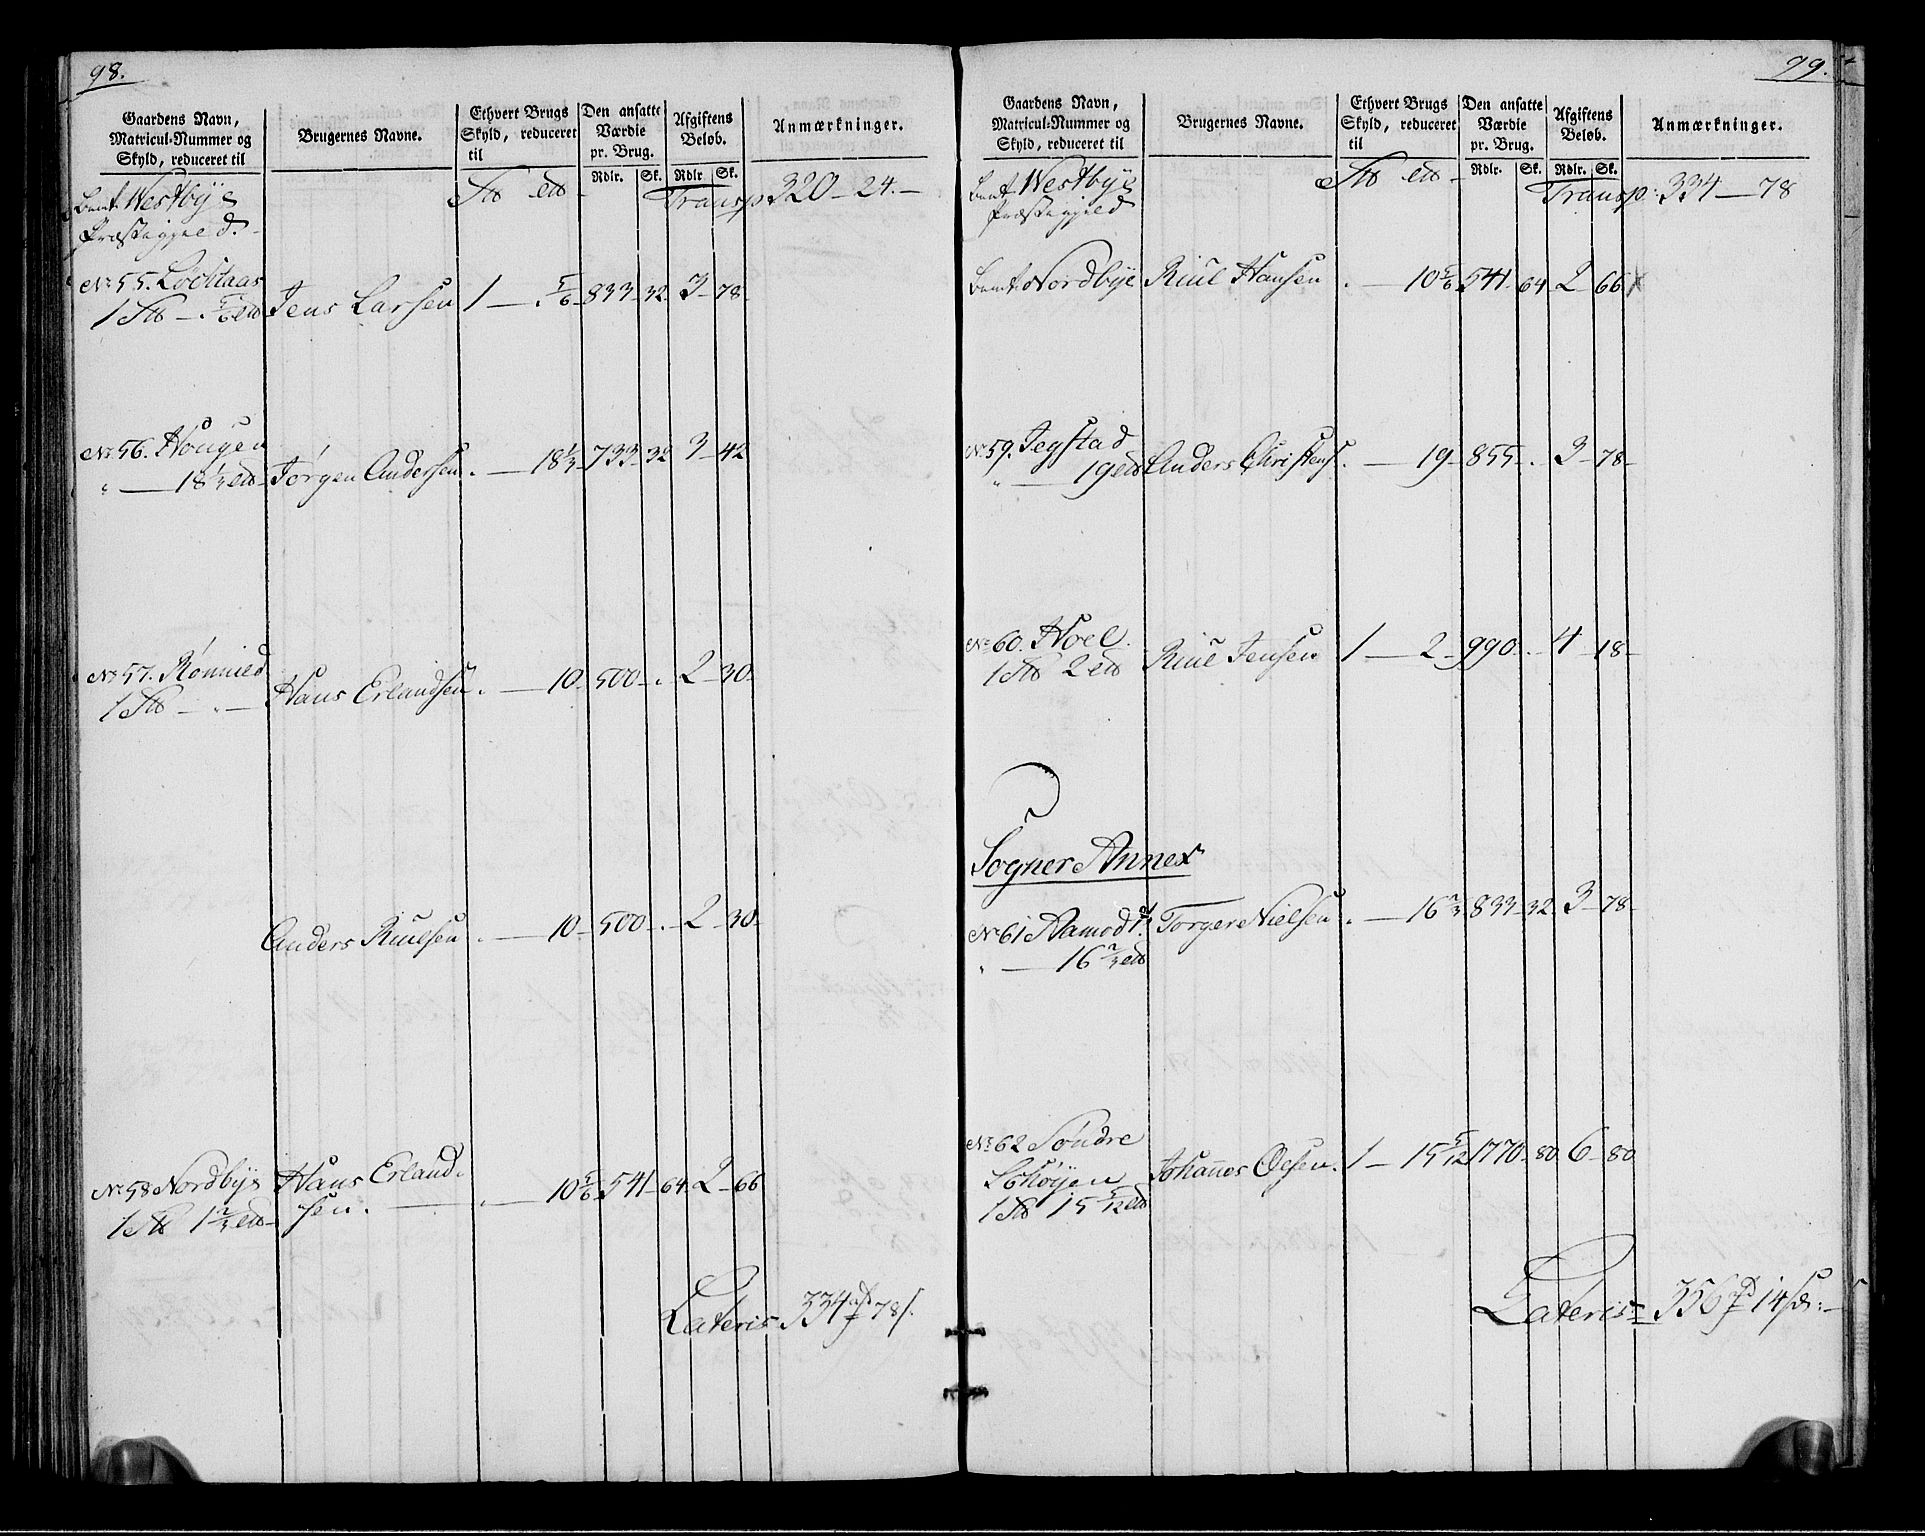 98.
Gaardens Navn, Matricul-Nummer og Skyld, reduceret til
Brugernes Navne.
Ethvert Brugs Skyld, reduceret til
Den ansatte Værdie pr. Brug.
Rdlr. Sk.
Afgiftens Beløb.
Rdlr Sk.
Anmærkninger.
Westbye Transp. 320 - 24. -
Præstegjeld.
No 55. Lochaas Jens Larsen 1 - . 5/6 833 - 32 3 - 78 -
No 56. Hougen
18 1/3 Jørgen Andersen . - 18 1/3 733 - 32 3 - 42
No 57. Rønnied Hans Erlandsen . - 10 - 500 - . 2 - 30 -
Anders Riulsen . - 10 - 500 - . - 2 - 30 -
No 58 Nordbye Hans Erland-
1 1 2/3 sen. . - 10 5/6 541 - 64 2 - 66
Lateris 334 78
99.
Gaardens Navn, Matricul-Nummer og Skyld, reduceret til
Brugernes Navne.
Ethvert Brugs Skyld, reduceret til
Den ansatte Værdie pr. Brug.
Rdlr. Sk.
Afgiftens Beløb.
Rdlr. Sk.
Anmærkninger.
Westbye Transp: 334 - 78
Præstegjeld
Nordbye Riul Hansen . - 10 5/6 541 - 64 2 - 66
No 59. Jegstad
19 Anders Christens. . - 19 - 855 - . 3 - 78 -
No 60. Hoel
1 2 Riul Jensen 1 - 2 - 990 - . 4 - 18 -
Sogner Annex
No 61 Aamodt. Torger Nielsen . - 16 2/3 833 - 32 3 - 78 -
16 2/3
No 62 Søndre
Schøyen Johannes Olsen. 1 - 15 5/12 1770 - 80 6 - 80
1 15 5/12
Lateris 356 14